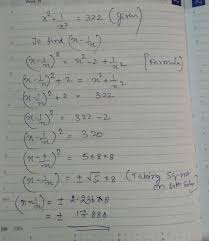 x² + 1/x² = 322 (given)
To find (x - 1/x)
(x - 1/x)² = x² - 2 + 1/x² [Formula]
(x - 1/x)² + 2 = x² + 1/x²
(x - 1/x)² + 2 = 322
(x - 1/x)² = 322 - 2
(x - 1/x)² = 320
(x - 1/x)² = 5 * 8 * 8
(x - 1/x) = ± √5 * 8 (Taking Sq root on both sides)
(x - 1/x) = ± 2.236 * 8
= ± 17.888